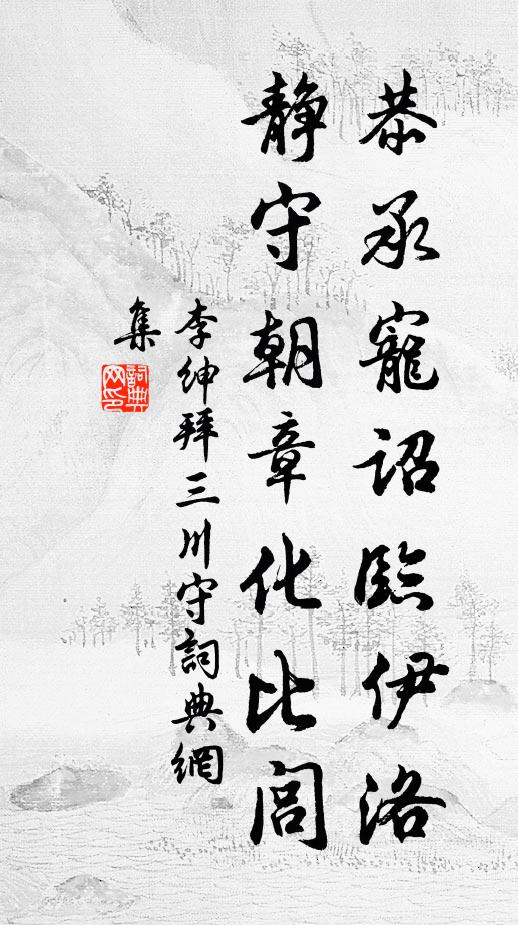 恭承寵詔臨伊洛
静守朝章化比閭
李紳拜三川守詞典網
集
詞典
网印